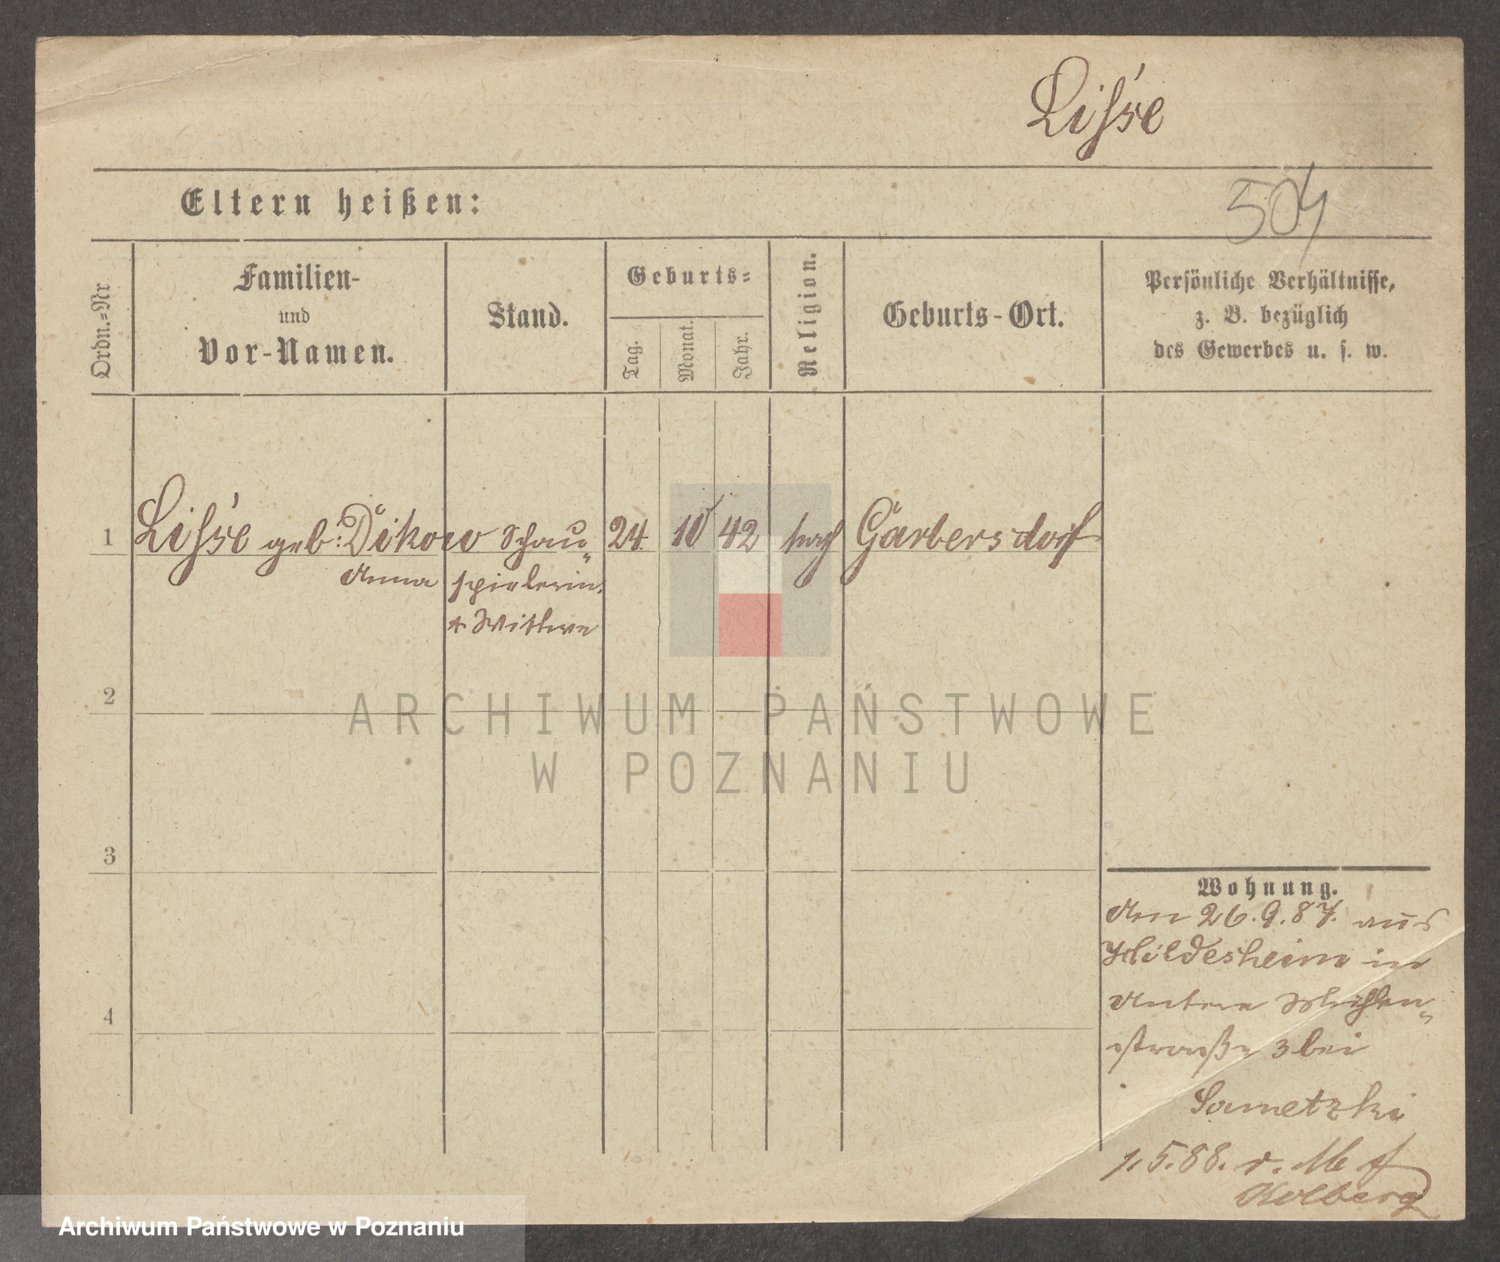 Lisse
504
Eltern heißen:
Ordn.-Nr
Familien-
und
Vor-Namen.
Stand.
Geburts-
Tag.
Monat.
Jahr.
Religion.
Geburts-Ort.
Persönliche Verhältnisse,
z. B. bezüglich
des Gewerbes u. s. w.
1 Lisse geb. Dikow Schau- 24 10 42 Garbersdorf
Anna spielerin
+ Wittwe
2
3
4
Wohnung.
Am 26.9.87. aus
Hildesheim in
Untere Mühlen-
straße 3 bei
Sametzki
1.5.88. v. M
Kolberg
ARCHIWUM PAŃSTWOWE
W POZNANIU
Archiwum Państwowe w Poznaniu